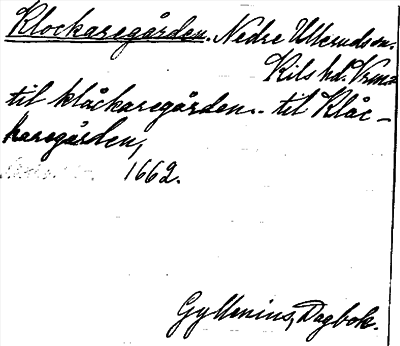 Klockaregården. Nedre Ulleruds sn.
Kils hd. Vrml.
til klåckaregården. - til Klåc-
karegården,
1662.
Gyllenius, Dagbok.